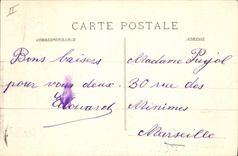 II
CARTE POSTALE
CORRESPONDANCE
ADRESSE
Bons baisers
pour vous deux.
Edouard
Madame Pujol
30 rue des
Minimes
Marseille